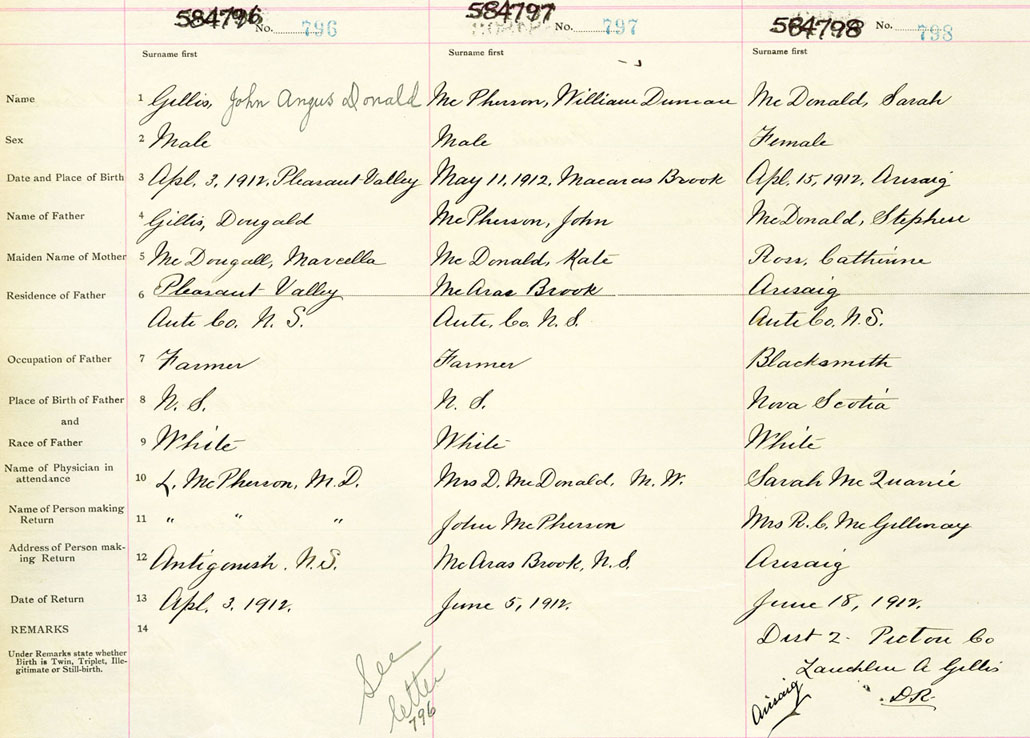 584796 No. 796 584797 No. 797 584798 No. 798
Surname first Surname first Surname first
Name 1 Gillis, John Angus Donald McPherson, William Duncan McDonald, Sarah
Sex 2 Male Male Female
Date and Place of Birth 3 Apl. 3, 1912, Pleasant Valley May 11, 1912, Macaras Brook Apl. 15, 1912, Arisaig
Name of Father 4 Gillis, Dougald McPherson, John McDonald, Stephen
Maiden Name of Mother 5 McDougall, Marcella McDonald, Kate Ross, Catherine
Residence of Father 6 Pleasant Valley McAras Brook Arisaig
Ante Co. N. S. Ante, Co. N. S. Ante Co. N. S.
Occupation of Father 7 Farmer Farmer Blacksmith
Place of Birth of Father 8 N. S. N. S. Nova Scotia
and
Race of Father 9 White White White
Name of Physician in attendance 10 L. McPherson, M.D. Mrs D. McDonald, M. W. Sarah McQuarrie
Name of Person making Return 11 " " " John McPherson Mrs R. C. McGillivray
Address of Person mak-ing Return 12 Antigonish. N.S. McAras Brook, N. S. Arisaig
Date of Return 13 Apl. 3, 1912. June 5, 1912. June 18, 1912.
REMARKS 14 Dist 2. Pictou Co
Under Remarks state whether
Birth is Twin, Triplet, Ille-
gitimate or Still-birth.
Lauchlin A Gillis
Arisaig D.R.
See
letter
796